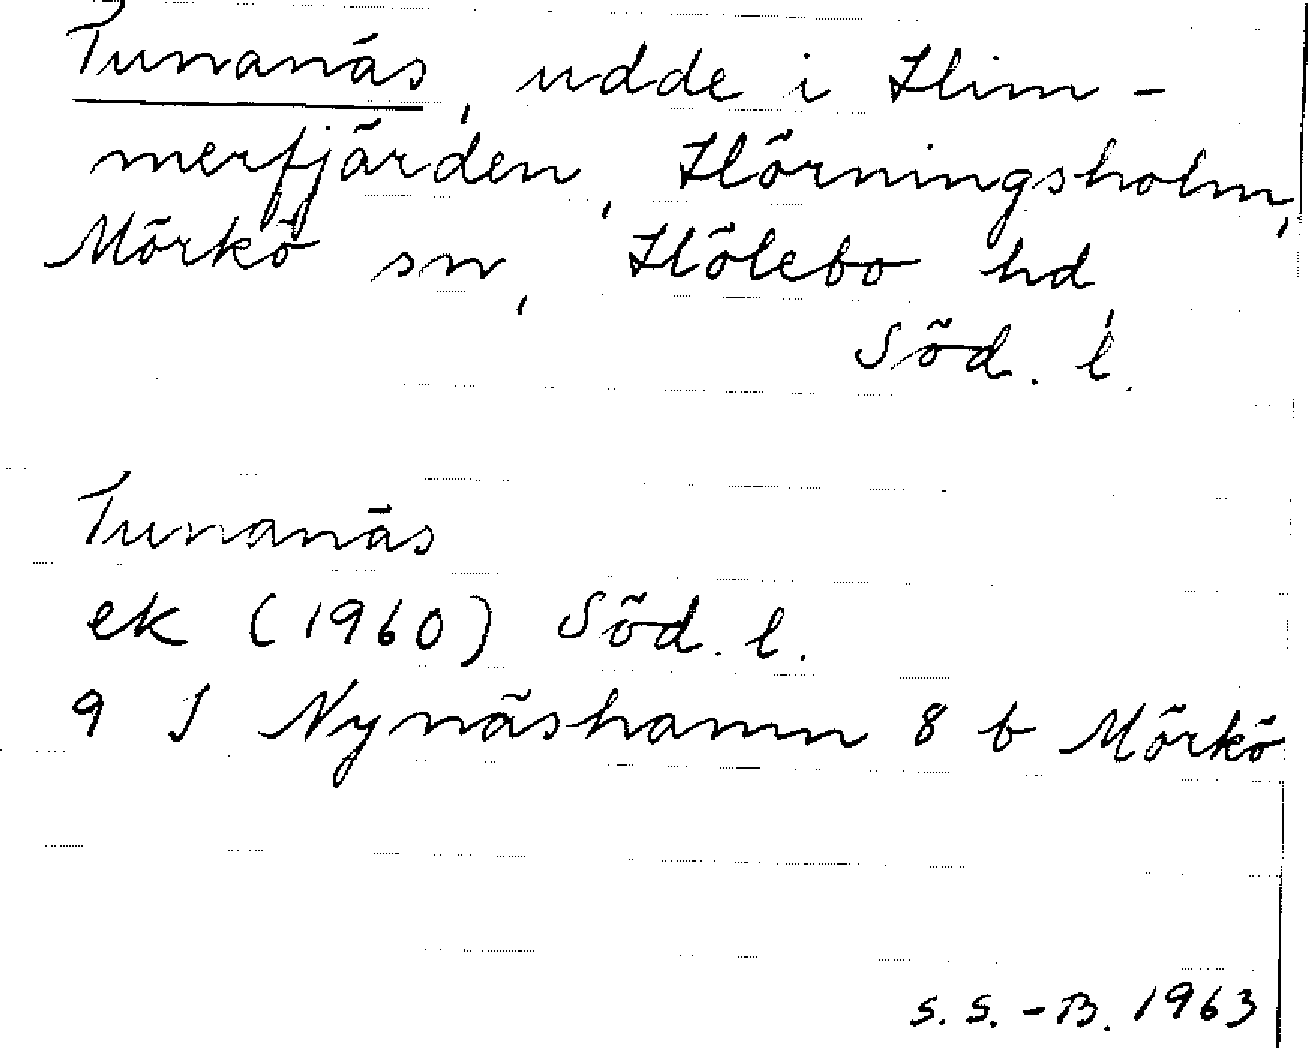 Tunanäs, udde i Him-
merfjärden, Hörningsholm,
Mörkö sn, Hölebo hd,
Söd. l.
Tunanäs
ek (1960) Söd. l.
9 I Nynäshamn 8 b Mörkö
S. S. - B. 1963